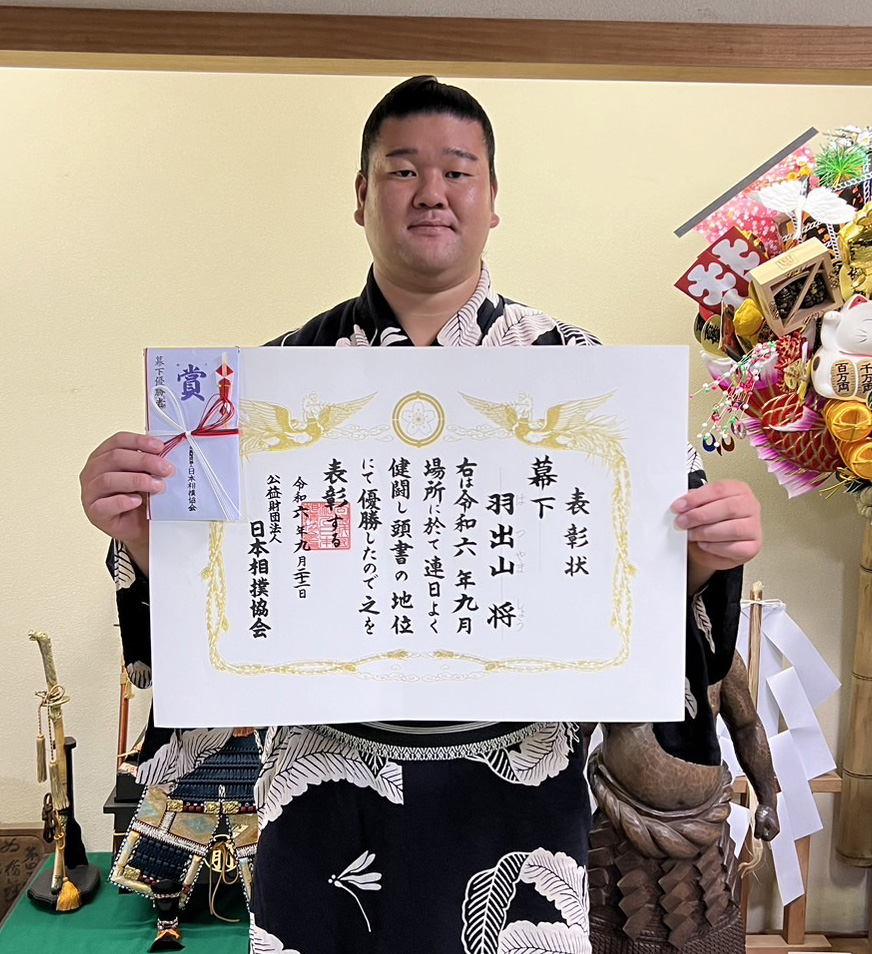 表彰状
幕下
羽出山 将
はつやま しょう
右は令和六年九月
場所に於て連日よく
健闘し頭書の地位
にて優勝したので之を
表彰する
令和六年九月二十二日
公益財団法人
日本相撲協会
賞
幕下優勝者
日本相撲協会
千万両
百万両